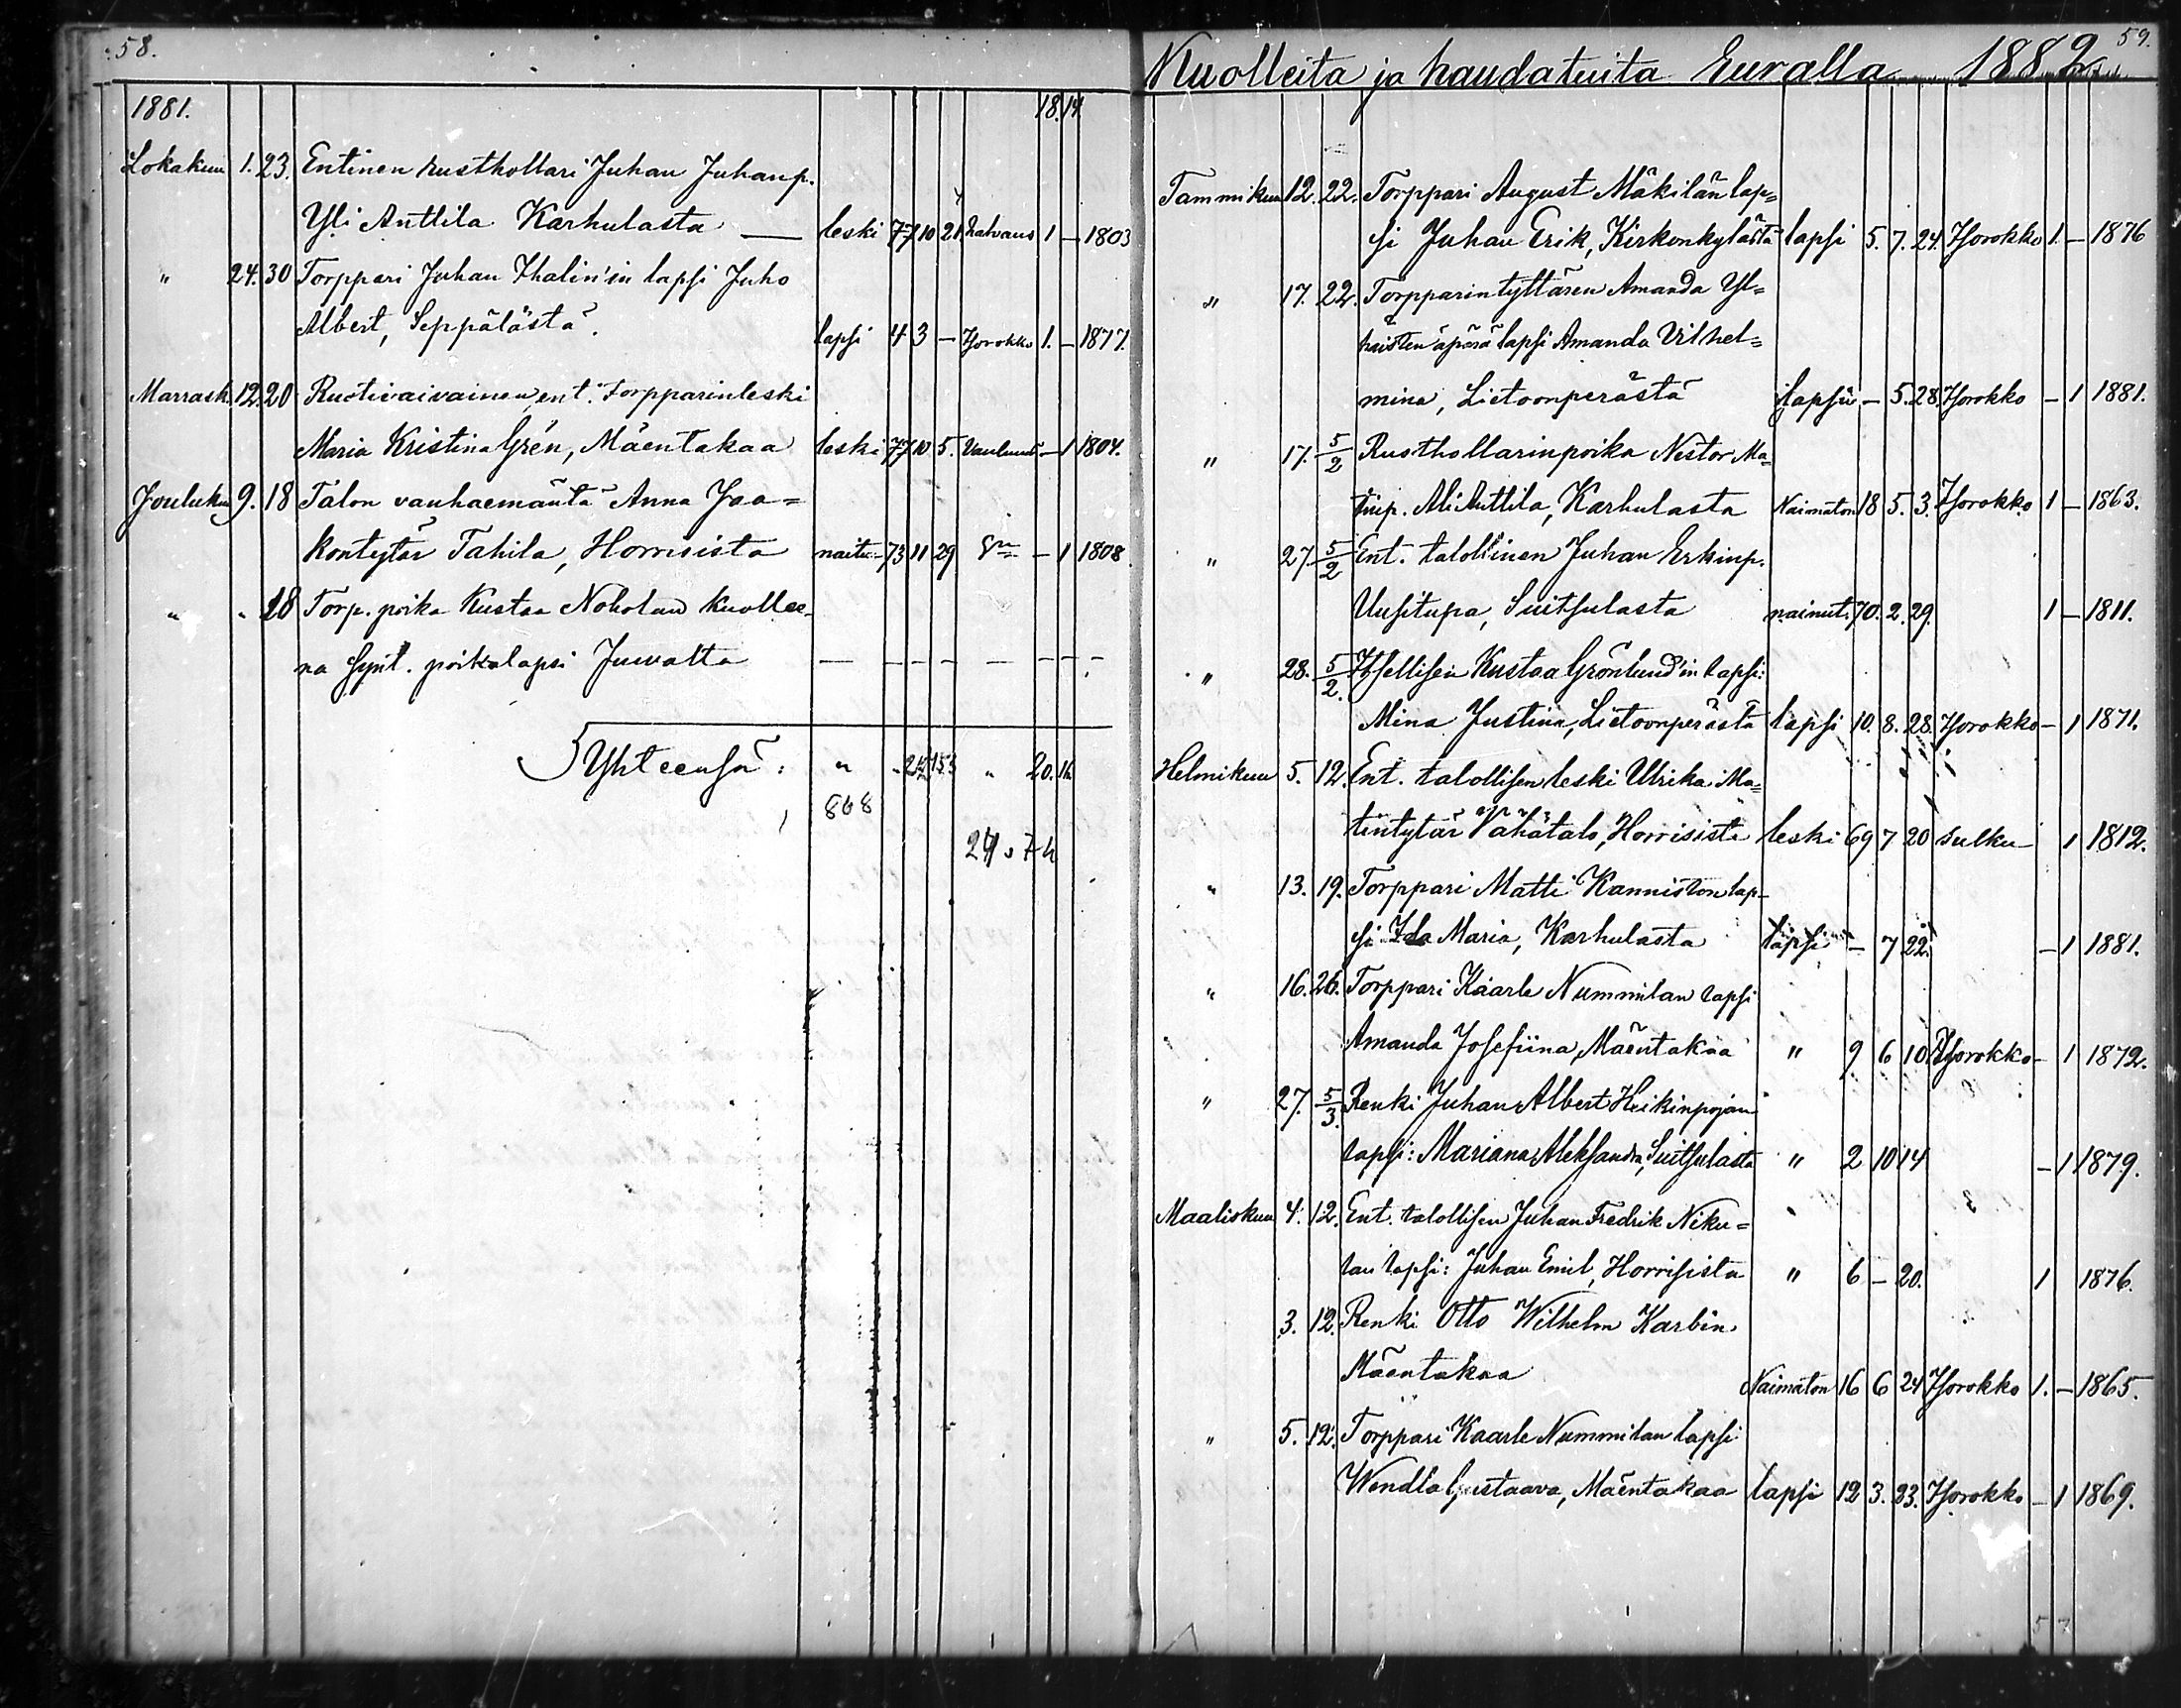 58.
1881.
18. 14.
Lokakuu 1. 23. Entinen rusthollari Juhan Juhanp.
Yli Anttila Karhulasta — leski 77 10 21 halvaus 1 — 1803
" 24. 30 Torppari Juhan Thalin'in lapsi Juho
Albert, Seppälästä. lapsi 4 3 — Tsorokko 1. — 1877.
Marrask. 12. 20 Ruotivaivainen, ent. torpparinleski
Maria Kristina Grén, Mäentakaa leski 77 10 5. Vanhuus — 1 1804.
Jouluku 9. 18 Talon vanhaemäntä Anna Jaa=
kontytär Tahila, Horrisista naitu 73 11 29 — 1 1808
" " 18 Torp. poika Kustaa Nokolan kuollee-
na synt. poikalapsi Juvalta — — — — — — — —
Yhteensä: " " " 20. 14
868
59.
Kuolleita ja haudatuita Euralla 1882
Tammikuu 12. 22. Torppari August Mäkilän lap=
si Juhan Erik, Kirkonkylästä lapsi 5. 7. 24. Tsorokko 1. — 1876
" 17. 22. Torpparintyttären Amanda Yl=
häisten äpärä lapsi Amanda Vilhel=
mina, Lietoonperästä lapsi — 5. 28. Tsorokko — 1 1881.
" 17. 5/2 Rusthollarinpoika Nestor Ma=
tinp. Ali Anttila, Karhulasta Naimaton 18 5. 3. Tsorokko 1 — 1863.
" 27. 5/2 Ent. talollinen Juhan Erkinp.
Uusitupa, Suitsulasta nainut 70. 2. 29. 1 — 1811.
" 28. 5/2. Itsellisen Kustaa Grönlund'in lapsi:
Mina Justina, Lietoonperästä lapsi 10. 8. 28. Tsorokko — 1 1871.
Helmikuu 5. 12. Ent. talollisen leski Ulrika Ma=
tintytär Vähätalo, Horrisista leski 69 7 20 sulku — 1 1812.
" 13. 19. Torppari Matti Kanniston lap-
si Ida Maria, Karhulasta lapsi — 7 22. — 1 1881.
" 16. 26. Torppari Kaarle Nummilan lapsi
Amanda Josefiina, Mäentakaa " 9 6 10 Tsorokko — 1 1872.
" 27. 5/3. Renki Juhan Albert Heikinpojan
lapsi: Mariana Aleksandra, Suitsulasta " 2 10 14 — 1 1879.
Maaliskuu 4. 12. Ent. talollisen Juhan Fredrik Niku=
lan lapsi: Juhan Emil, Horrisista " 6 — 20. 1 1876.
3. 12. Renki Otto Wilhelm Karbin
Mäentakaa Naimaton 16 6 24 Tsorokko 1. — 1865.
" 5. 12. Torppari Kaarle Nummilan lapsi
Wendla Gustaava, Mäentakaa lapsi 12 3. 23. Tsorokko — 1 1869.